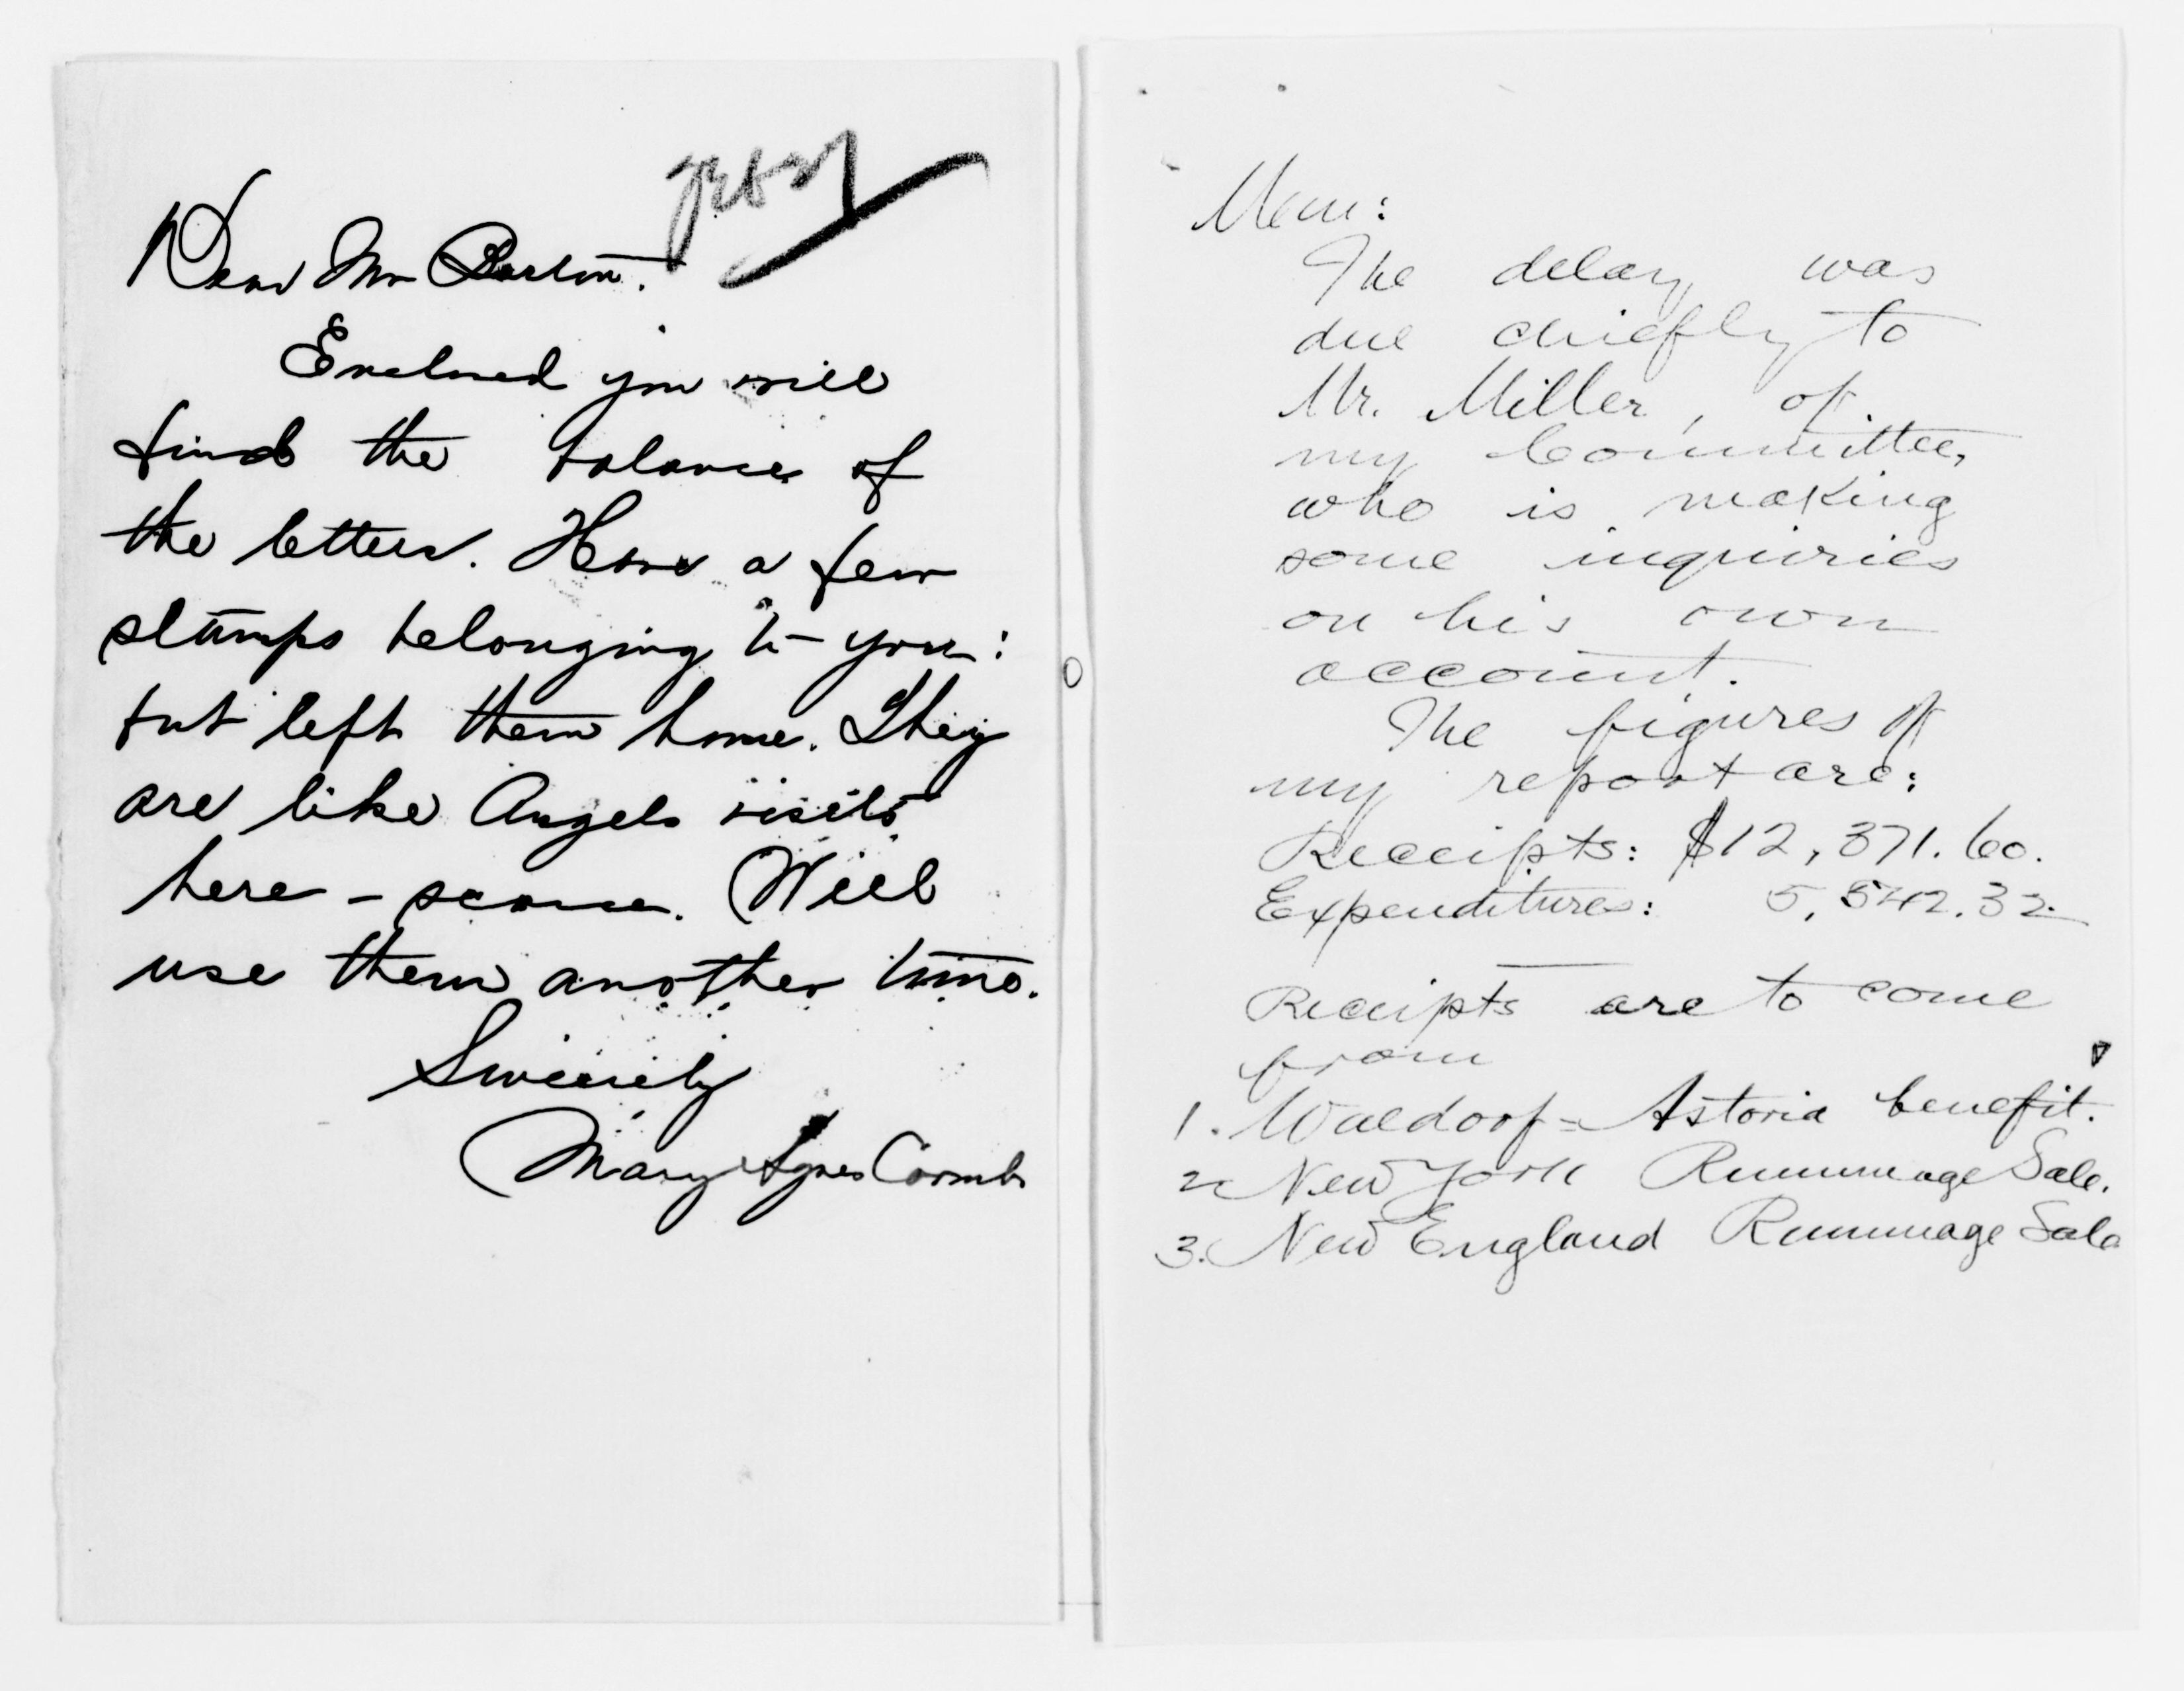 Dear Mr Barton.
Enclosed you will
find the balance of
the letters. Have a few
stamps belonging to you:
but left them home. They
are like Angels visits
here - scarce. Will
use them another time.
Sincerely
Mary Agnes Coombs
Mem:
The delay was
due chiefly to
Mr. Miller, of
my Committee,
who is making
some inquiries
on his own
account.
The figures of
my report are:
Receipts: $12,371.60.
Expenditures: 5,542.32
Receipts are to come
from
1. Waldorf=Astoria benefit.
2 New York Rummage Sale.
3. New England Rummage Sale